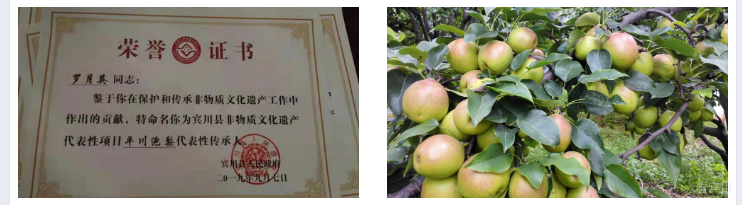 荣誉证书
罗月英 同志:
鉴于你在保护和传承非物质文化遗产工作中
作出的贡献,特命名你为宾川县非物质文化遗产
代表性项目平川泡梨代表性传承人
宾川县人民政府
二〇一九年九月七日